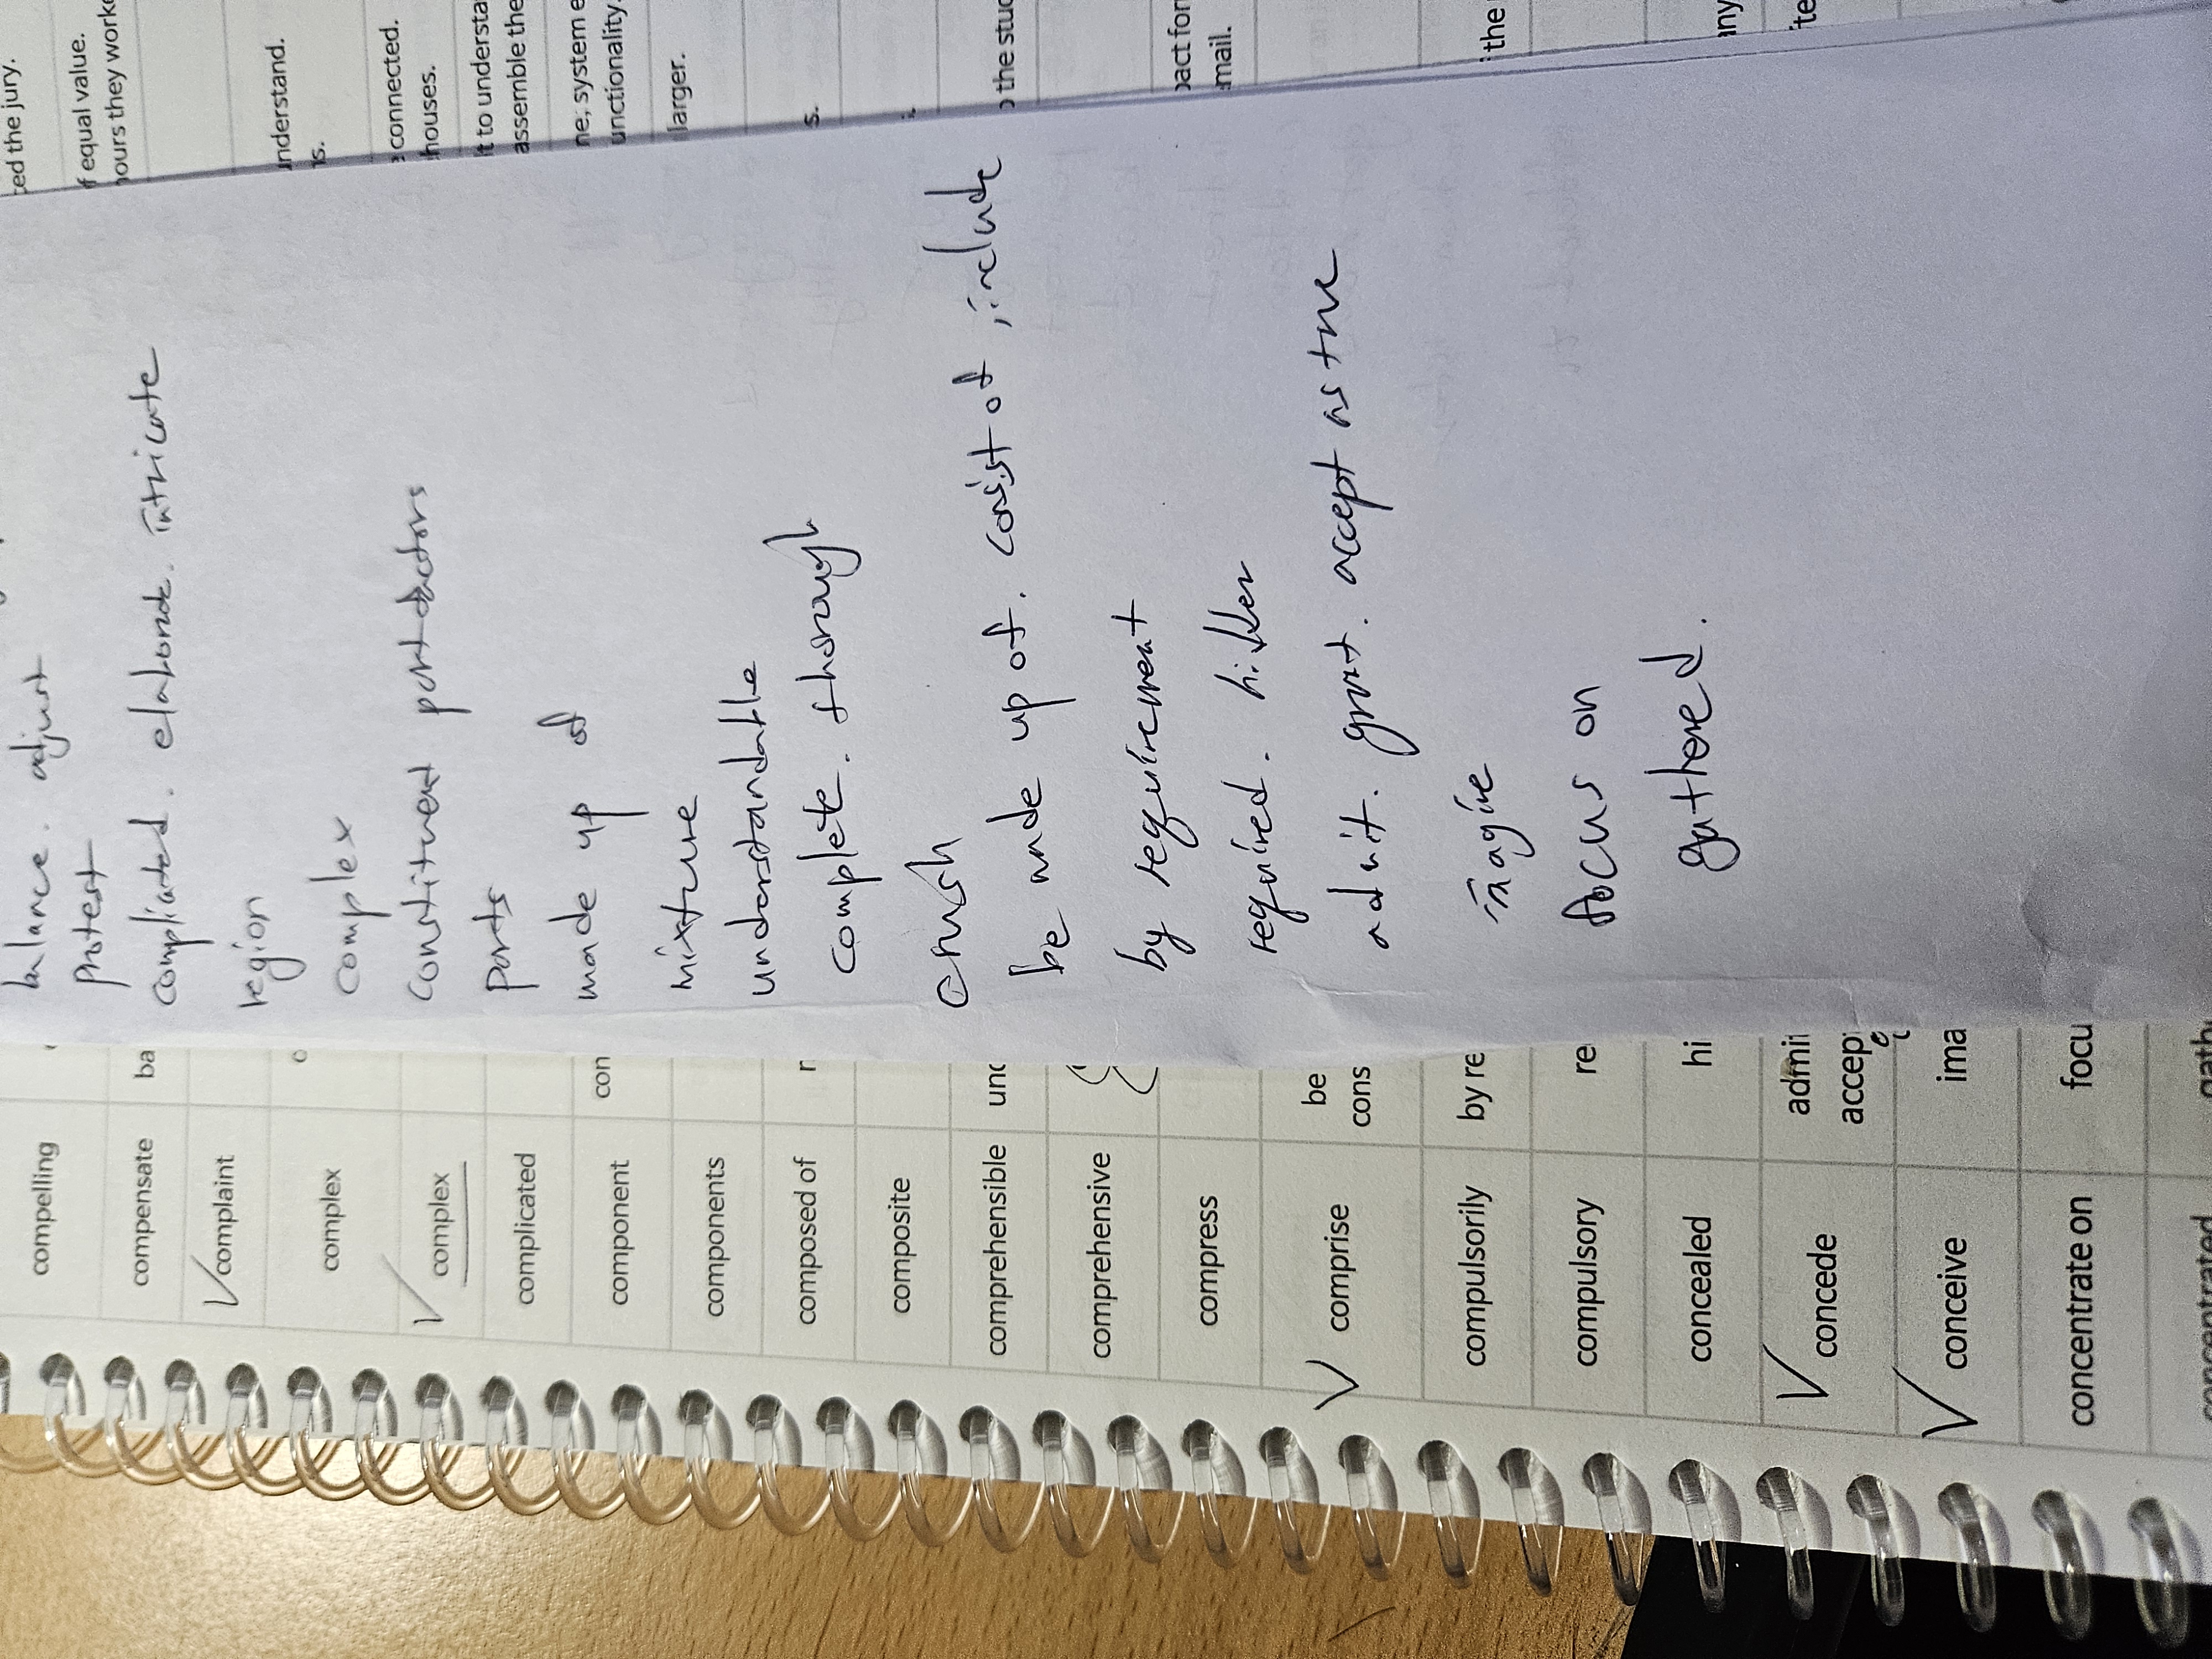 compelling
compensate
complaint
complex
complex
complicated
component
components
composed of
composite
comprehensible
comprehensive
compress
comprise
compulsorily
compulsory
concealed
concede
conceive
concentrate on
concentrated
ba
con
unc
be
cons
by re
re
hi
admi
accep
ima
focu
balance. adjust
protest
complicated. elaborate. intricate
region
complex
constituent part factors
parts
made up of
mixture
understandable
complete. thorough
crush
be made up of. consist of, include
by requirement
required. hidden
admit. grant. accept as true
imagine
focus on
gathered.
ted the jury.
f equal value.
hours they worke
understand.
ns.
e connected.
houses.
lt to understa
assemble the
ne, system e
unctionality.
larger.
s.
the stud
pact for
mail.
the
any